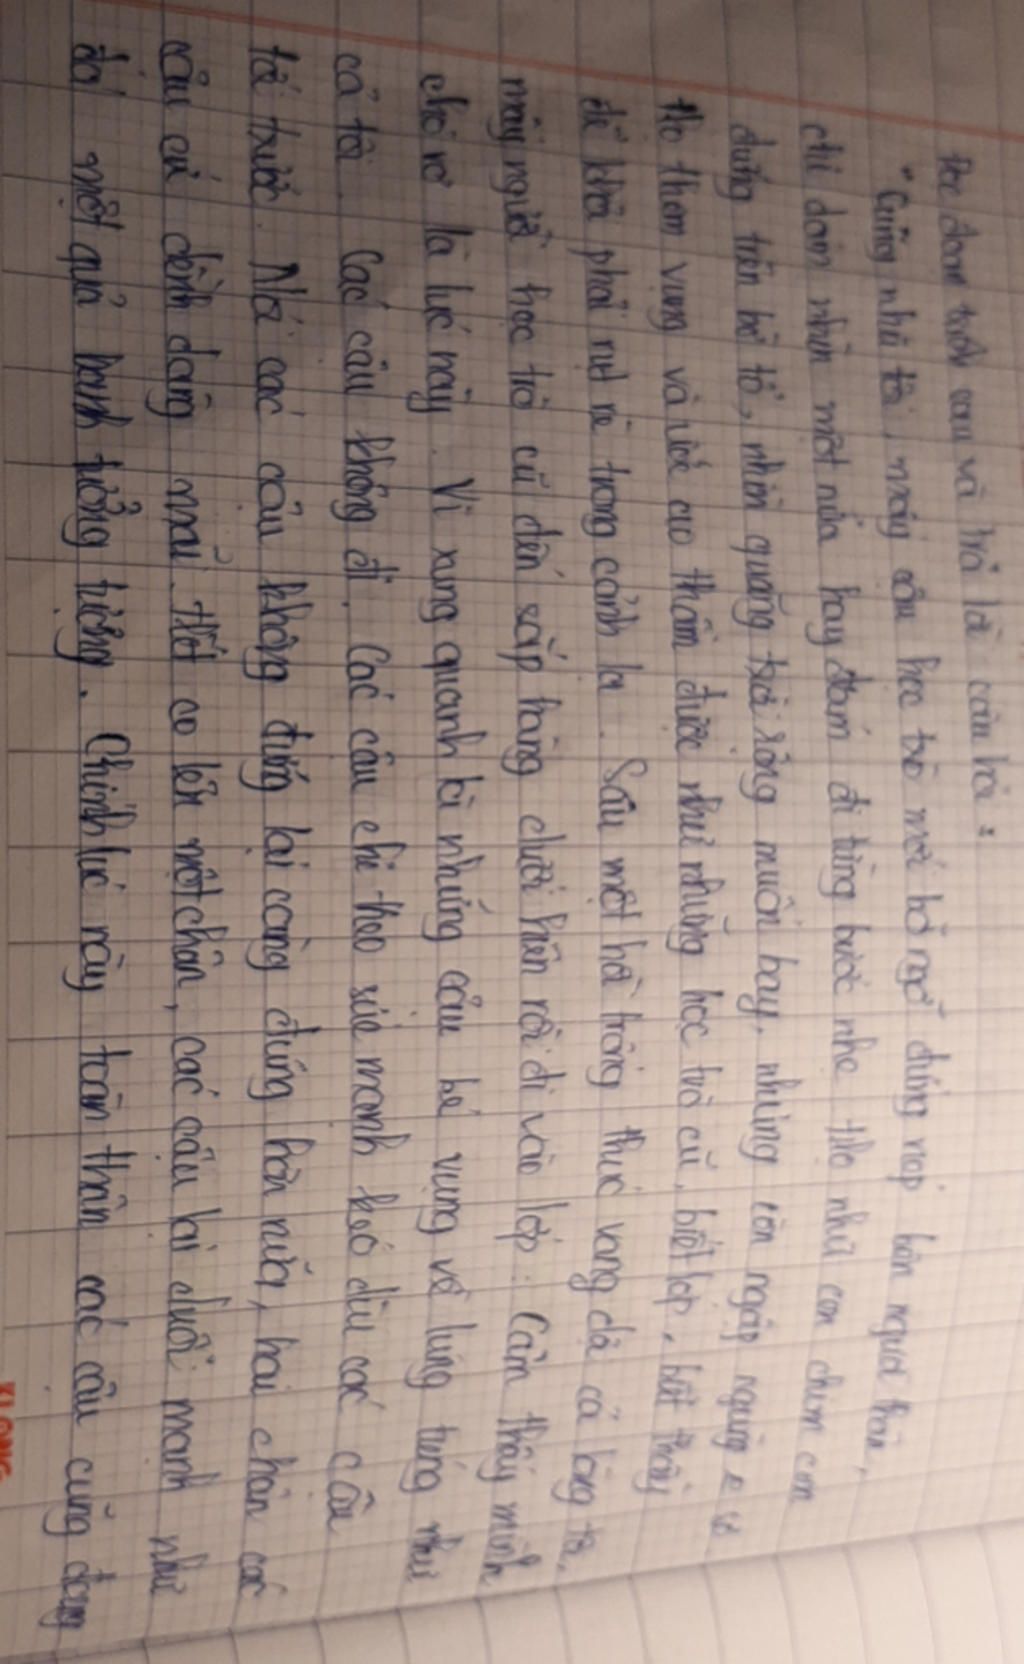 Đọc đoạn trích sau và trả lời câu hỏi:
"Cũng như tôi, mấy cậu học trò mới bỡ ngỡ đứng nép bên người thân,
chỉ dám nhìn một nửa hay dám đi từng bước nhẹ. Họ như con chim con
đứng trên bờ tổ, nhìn quãng trời rộng muốn bay, nhưng còn ngập ngừng e sợ
Họ thèm vụng và ước ao thầm được như những học trò cũ, biết lớp, biết thầy
để khỏi phải rụt rè trong cảnh lạ. Sau một hồi trống thúc vang dội cả lòng tôi,
mấy người học trò cũ đến sắp hàng dưới hiên rồi đi vào lớp. Cảm thấy mình
chơ vơ là lúc này. Vì xung quanh là những cậu bé vụng về lúng túng như
cả tôi. Các cậu không đi. Các cậu chỉ theo sức mạnh kéo dìu các cậu
tới trước. Nói các cậu không đứng lại càng đúng hơn nữa, hai chân các
cậu cứ dềnh dàng mãi. Hết co lên một chân, các cậu lại duỗi mạnh như
đá một quả banh tưởng tượng. Chính lúc này toàn thân các cậu cũng đang